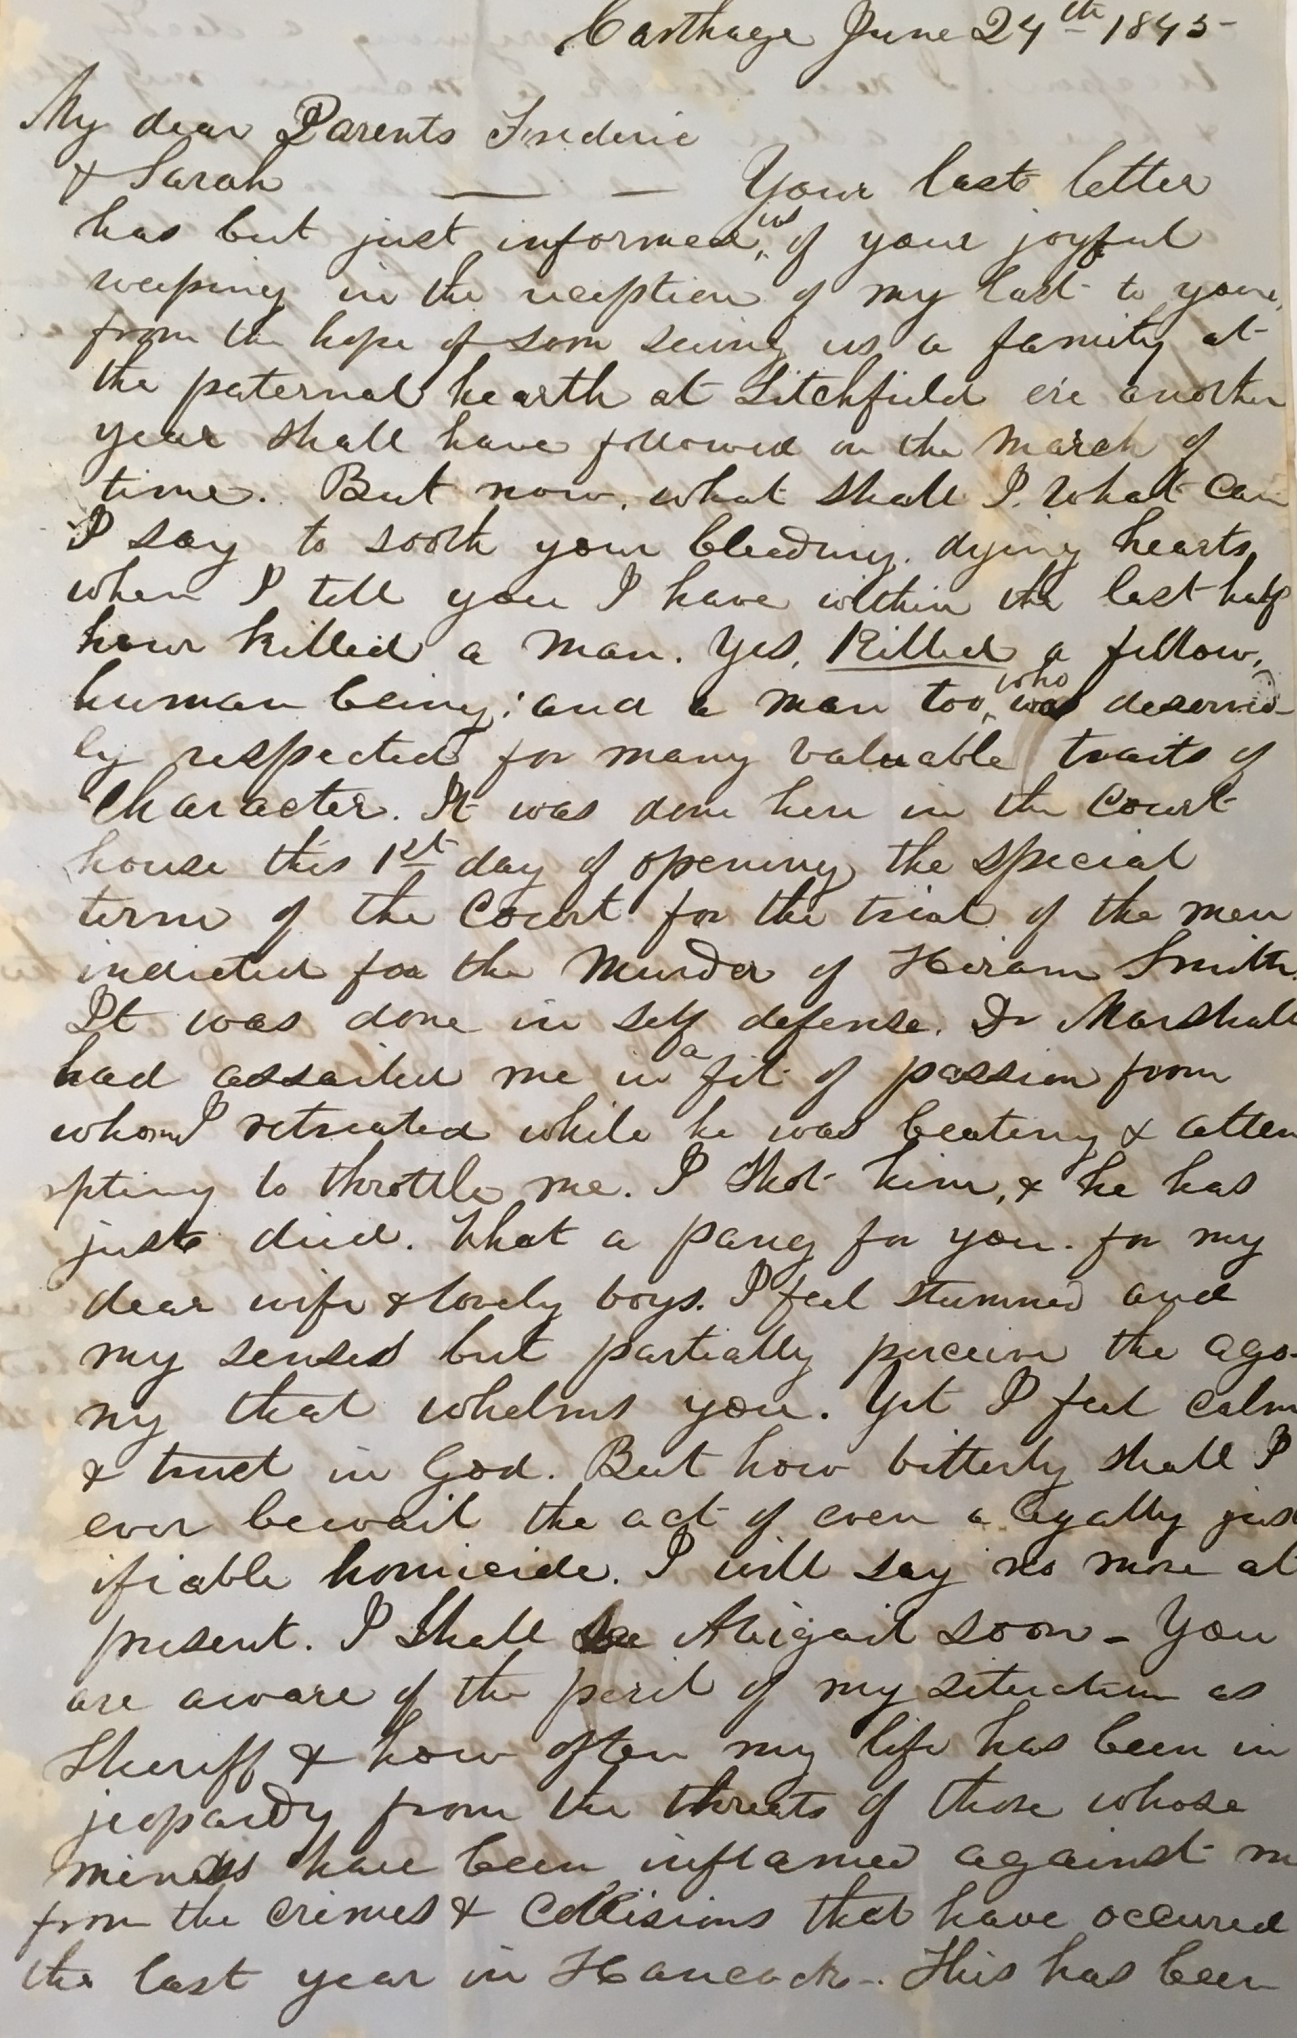 Carthage June 24th 1845-
My dear Parents Frederic
& Sarah — — Your last letter
has but just informed us of your joyful
weeping in the reception of my last to you,
from the hope of soon seeing us a family at
the paternal hearth at Litchfield ere another
year shall have followed on the march of
time. But now, what shall I, what can
I say to sooth your bleeding, dying hearts,
when I tell you I have within the last half
hour killed a man. Yes, Killed a fellow,
human being; and a man too, who was deserved-
ly respected for many valuable traits of
Character. It was done here in the Court
house this 1st day of opening the special
term of the Court for the trial of the men
indicted for the Murder of Hiram Smith.
It was done in self defense. Dr Marshall
had assailed me in a fit of passion from
whom I retreated while he was beating & attem
pting to throttle me. I Shot him, & he has
just died. What a pang for you. for my
dear wife & lovely boys. I feel stunned and
my senses but partially perceive the ago-
ny that whelms you. Yet I feel calm
& trust in God. But how bitterly shall I
ever bewail the act of even a legally just
ifiable homicide. I will say no more at
present. I Shall see Abigail soon - You
are aware of the peril of my situation as
Sheriff & how often my life has been in
jeopardy from the threats of those whose
minds have been inflamed against m
from the crimes & Collisions that have occured
the last year in Hancock -. This has been